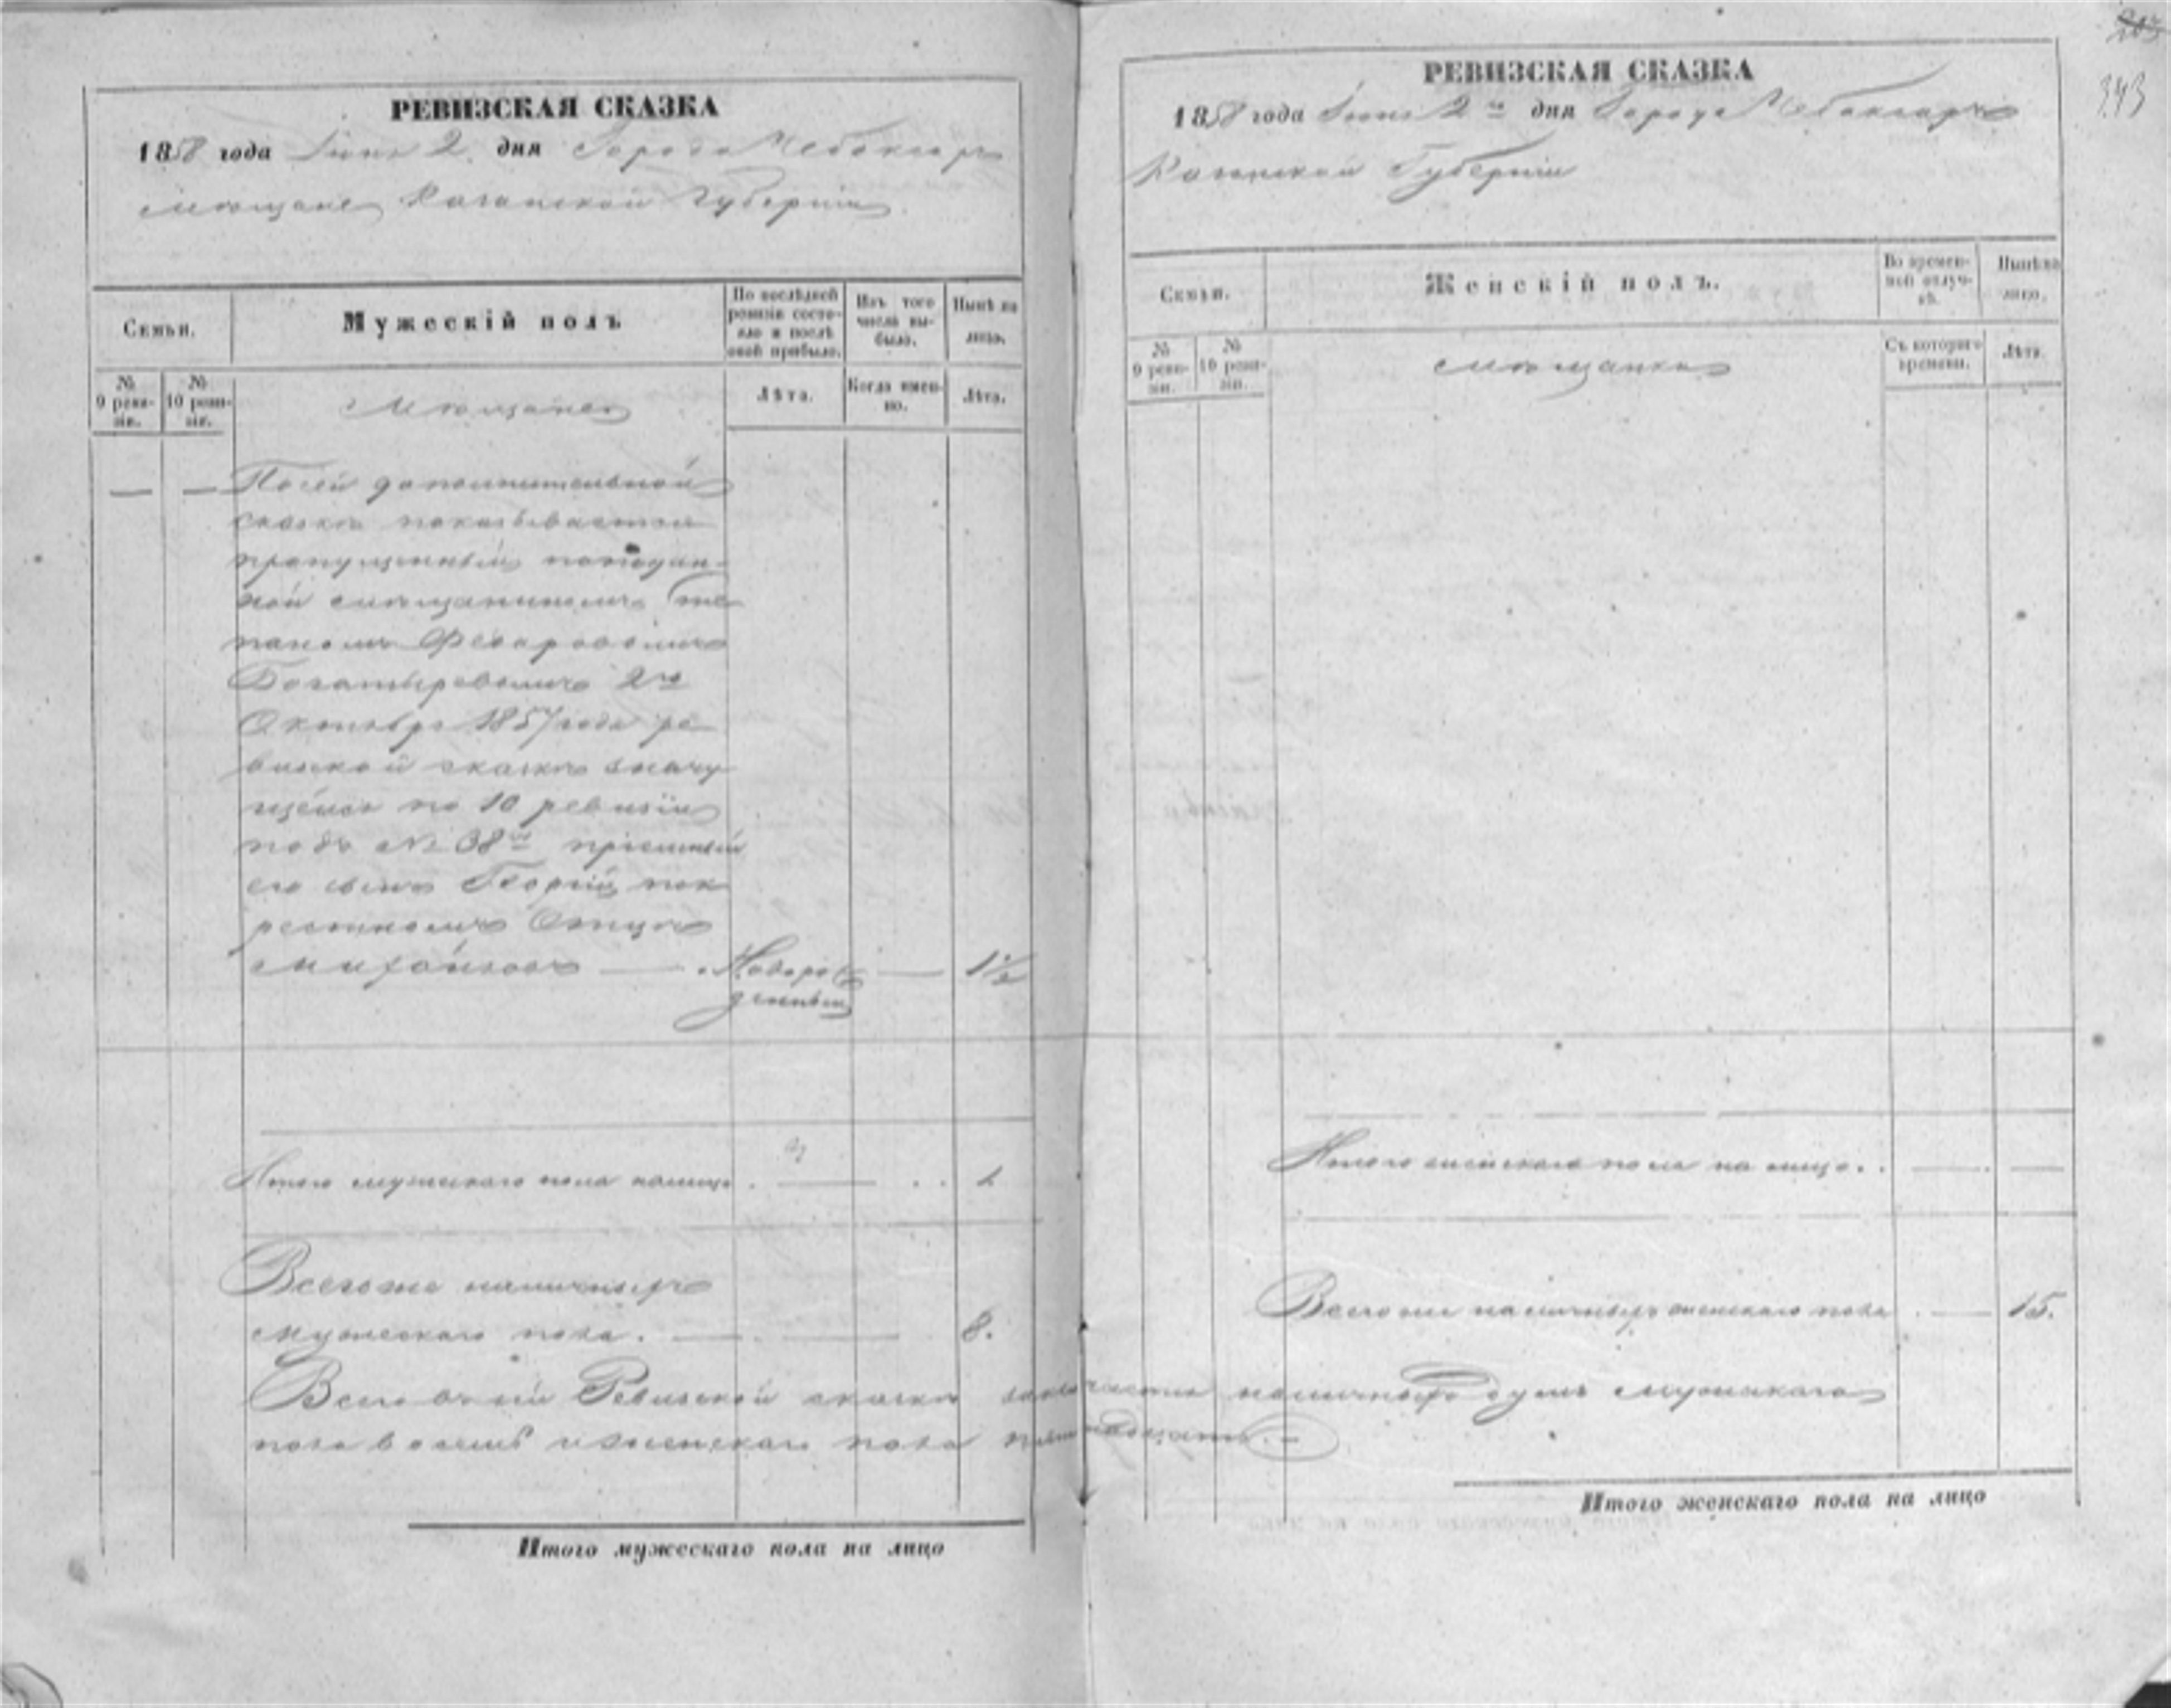 РЕВИЗСКАЯ СКАЗКА
1858 года Июня 2 дня Города Чебоксаръ
мѣщане Казанской Губерніи
Семьи.
Мужескій полъ
По послѣдней ревизіи состояло и послѣ оной прибыло.
Изъ того числа выбыло.
Нынѣ на лицо.
№ 9 ревизіи.
№ 10 ревизіи.
Мѣщане
Лѣта.
Когда именно.
Лѣта.
— — По сей дополнительной
сказкѣ показывается
пропущенный поподан-
ной мѣщаниномъ Сте
паномъ Федоровымъ
Богатыревымъ 2го
Октября 1857 года ре
визской сказкѣ значу
щемся по 10 ревизіи
подъ № 38мъ пріемный
его сынъ Георгій по к
рестномъ Отцѣ
Михайловъ — Новорож — 1½
денный
Итого мужескаго пола налицо . — . . 1.
Всего же наличныхъ
мужескаго пола . — . — 8.
Всего въ сей Ревизской сказкѣ заключается наличныхъ душъ мужескаго
пола восемь и женскаго пола пятнадцать. —
Итого мужескаго пола на лицо
343
РЕВИЗСКАЯ СКАЗКА
1858 года Июня 2го дня Города Чебоксаръ
Казанской Губерніи
Семьи.
Женскій полъ.
Во временной отлучкѣ.
Нынѣ на лицо.
№ 9 ревизіи.
№ 10 ревизіи.
мѣщанки
Съ котораго времени.
Лѣта.
Итого женскаго пола на лицо . . — . —
Всего же наличныхъ женскаго пола . — 15.
Итого женскаго пола на лицо